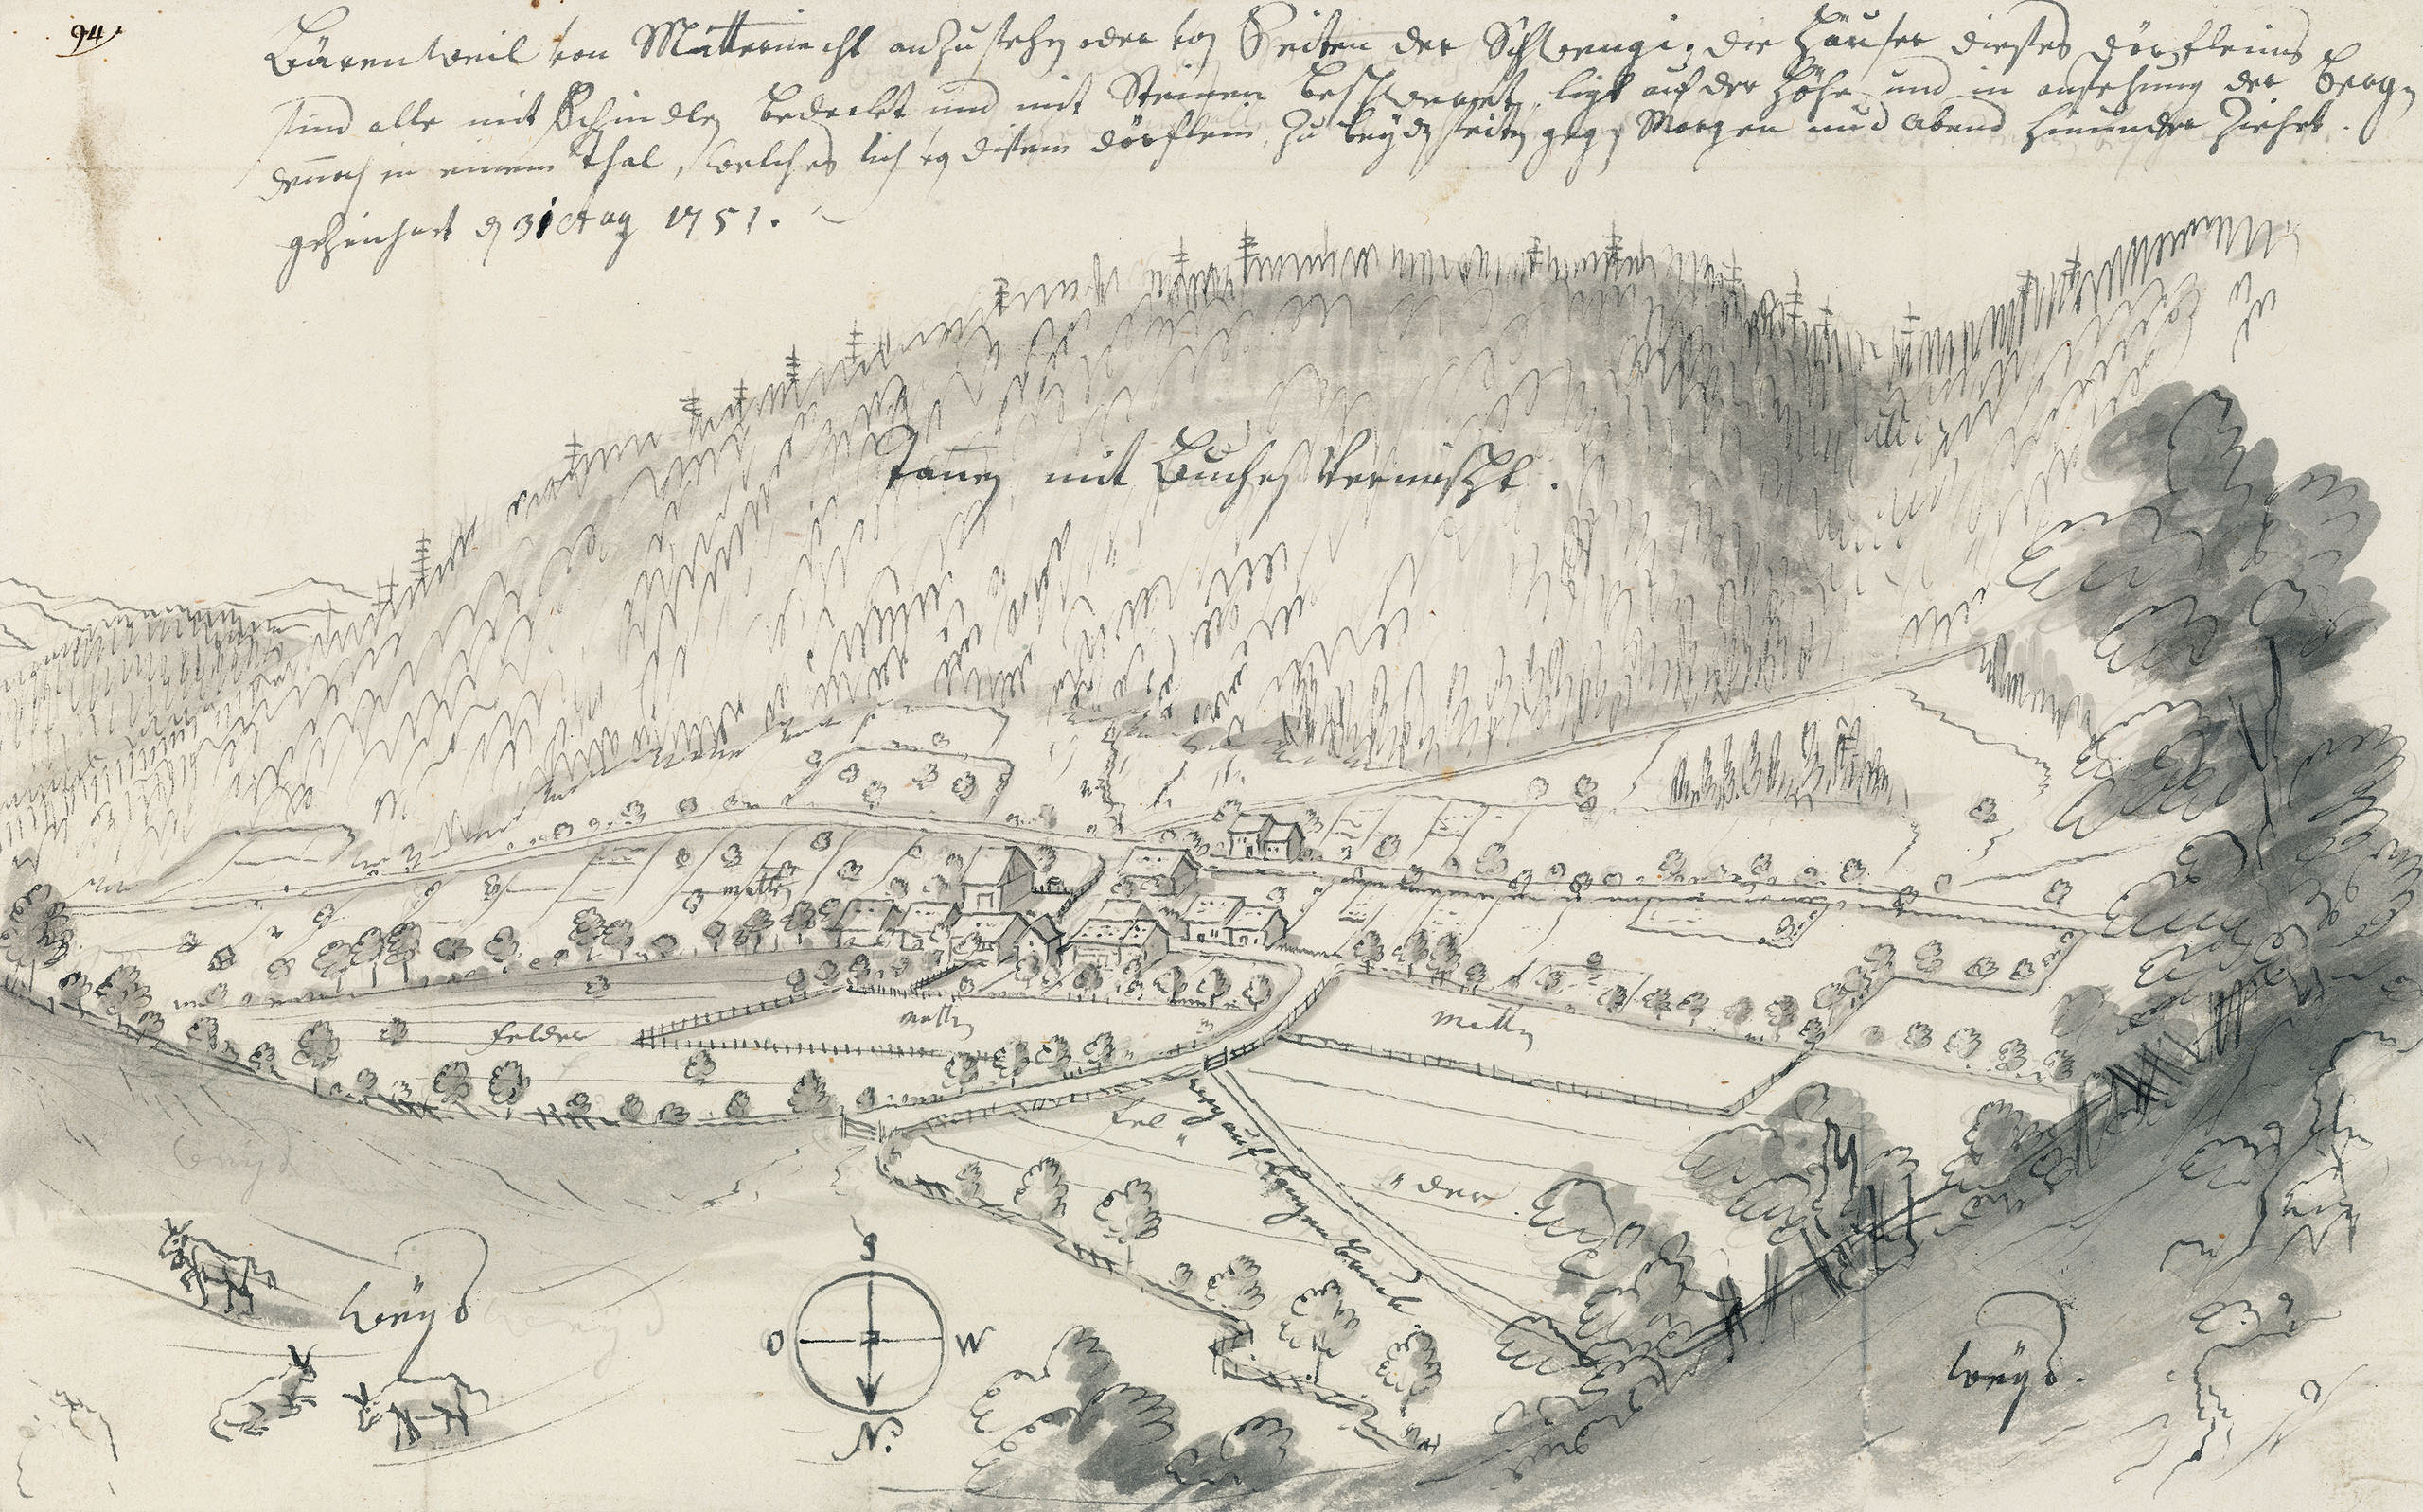 94.
Bärenweil von Mitternacht anzusehen oder von Seiten der Schwengi; die Häuser dieses dörfleins
sind alle mit Schindlen bedeckt und mit Steinen beschweret, ligt auf der Höhe und in ansehung der bergen
dennoch in einem Thal, welches sich von disem dörflein, zu beyden seiten gegen Morgen und Abend hinunder ziehet.
gezeichnet den 31 Aug 1751.
Tannen mit Buchen vermischt.
matten
felder
matten
matten
fel"
weg auf Langenbruck.
"der
weyd
weyd
weyd.
S
O
W
N.